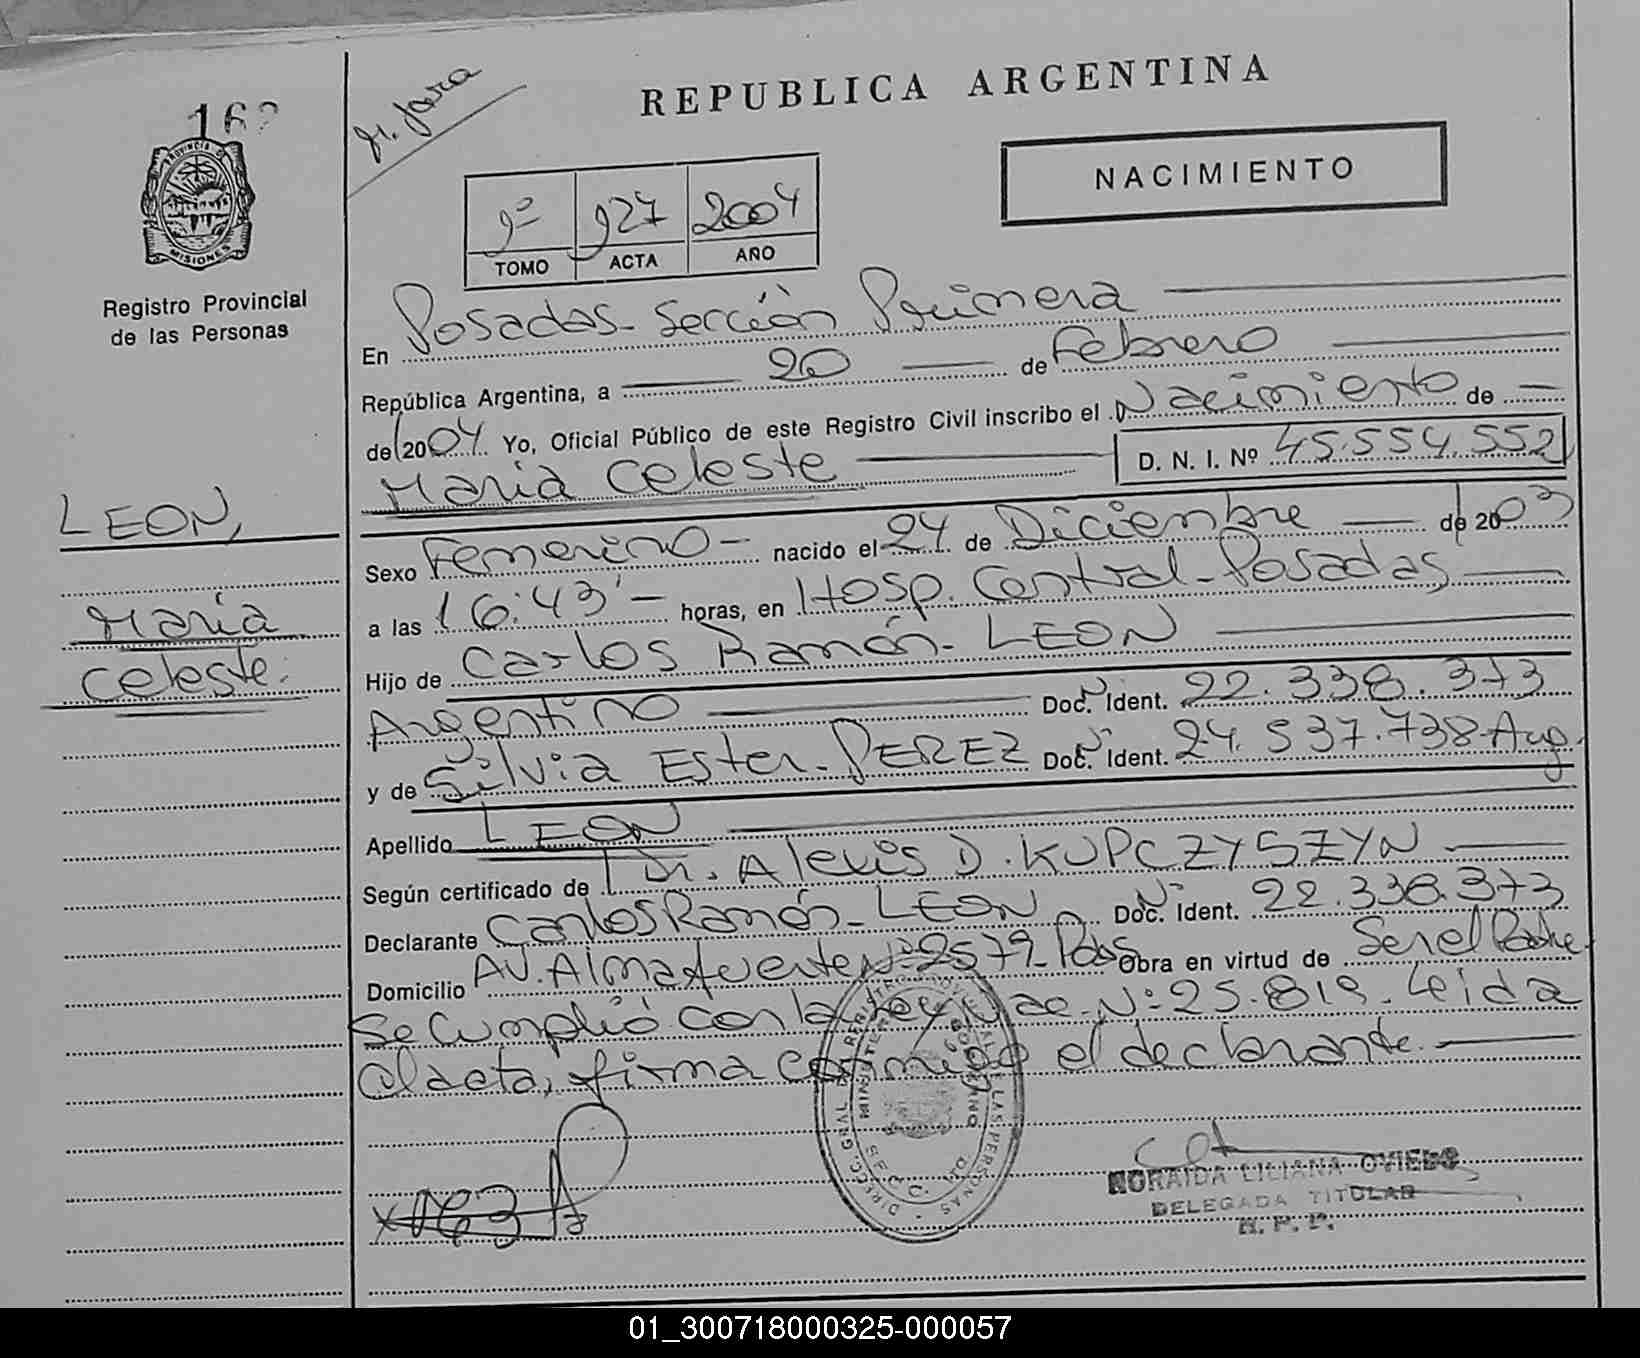 162
PROVINCIA DE
MISIONES
Registro Provincial
de las Personas
LEON,
María
Celeste.
M. Jara
REPUBLICA ARGENTINA
NACIMIENTO
9º 927 2004
TOMO ACTA AÑO
En Posadas- Sección Primera
República Argentina, a 20 de Febrero
de 2004 Yo, Oficial Público de este Registro Civil inscribo el Nacimiento de
María Celeste D. N. I. Nº 45.554.552
Sexo Femenino - nacido el 24 de Diciembre de 2003
a las 16:43'- horas, en Hosp. Central-Posadas
Hijo de Carlos Ramón- LEON
Argentino Doc. Ident. Nº 22.338.373
y de Silvia Ester- PEREZ Doc. Ident. Nº 24.537.738-Arg.
Apellido LEON
Según certificado de Dr. Alexis D. KUPCZYSZYN
Declarante Carlos Ramón- LEON Doc. Ident. Nº 22.338.373
Domicilio AV. Almafuerte Nº 2579- Pdas Obra en virtud de Ser el Padre
Se Cumplió con la Ley Nac. Nº 25.819. Leida
el acta, firma conmigo el declarante.
DIRECC. GRAL. DE LAS PERSONAS
MINISTERIO
GOBIERNO
MORAIDA LILIANA OVIEDO
DELEGADA TITULAR
R. P. P.
01_300718000325-000057